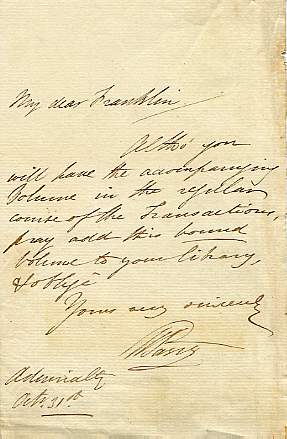 My dear Franklin
Altho' you
will have the accompanying
Volume in the regular
course of the Transactions,
pray add this bound
Volume to your library,
& oblige
Yours very sincerely
WEParry
Admiralty
Octr. 31st